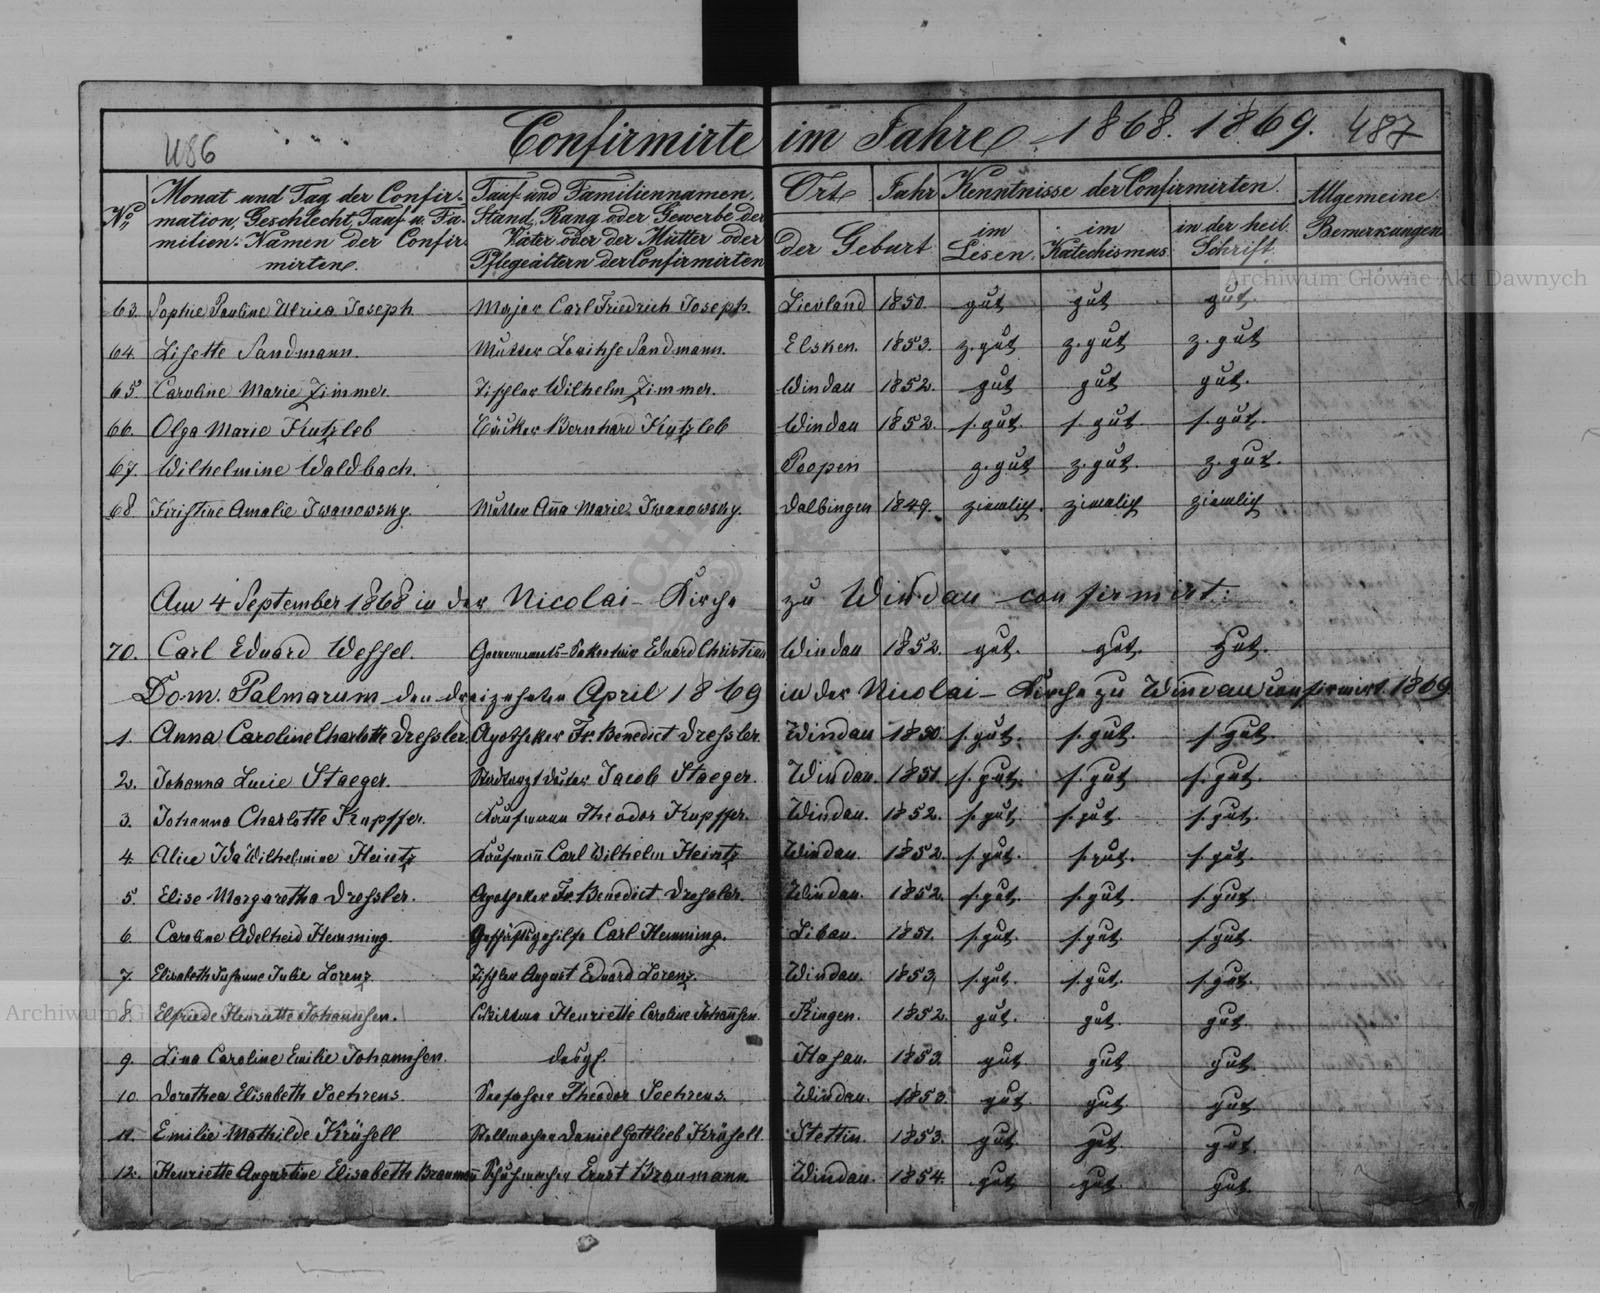 486
Confirmirte im Jahre 1868. 1869. 487
No
Monat und Tag der Confir-
mation, Geschlecht, Tauf u. Fa-
milien-Namen der Confir-
mirten.
Tauf und Familiennamen,
Stand, Rang oder Gewerbe der
Väter oder der Mütter oder
Pflegeältern der Confirmirten
Ort Jahr
der Geburt
Kenntnisse der Confirmirten.
im Lesen.
im Katechismus
in der heil. Schrift.
Allgemeine
Bemerkungen
Archiwum Główne Akt Dawnych
63. Sophie Pauline Ulrica Joseph Major Carl Friedrich Joseph. Lievland 1850. gut gut gut.
64. Lisette Sandmann. Mutter Sandmann. Elsken. 1853. z. gut z. gut z. gut
65. Caroline Marie Zimmer Tischler Wilhelm Zimmer. Windau 1852. gut gut gut.
66. Olga Marie Kutzleb Bernhard Kutzleb Windau 1852. s. gut. s. gut. s. gut.
67. Wilhelmine Waldbach. Poopen z. gut z. gut. z. gut.
68. Kristine Amalie Iwanowsky. Mutter Anna Marie Iwanowsky. Dalbingen 1849. ziemlich. ziemlich ziemlich
Am 4 September 1868 in der Nicolai-Kirche zu Windau confirmirt:
70. Carl Eduard Wessel. Gouvernements-Sekretair Eduard Christian Windau 1852. gut. gut. gut.
Dom. Palmarum den dreizehnten April 1869 in der Nicolai-Kirche zu Windau confirmirt 1869.
1. Anna Caroline Charlotte Dressler. Apotheker Fr. Benedict Dressler. Windau 1850. s. gut. s. gut. s. gut
2. Johanna Lucie Staeger. Jacob Staeger. Windau. 1851. s. gut. s. gut s. gut.
3. Johanna Charlotte Kupffer. Kaufmann Theodor Kupffer. Windau. 1852. s. gut. s. gut. s. gut.
4. Alice Ida Wilhelmine Heintz Kaufmann Carl Wilhelm Heintz Windau. 1852. s. gut. s. gut. s. gut.
5. Elise Margaretha Dressler. Apotheker Fr. Benedict Dressler. Windau. 1852. s. gut. s. gut. s. gut.
6. Caroline Adelheid Hemming. Geschäftsgehilfe Carl Hemming. Libau. 1851. s. gut. s. gut. s. gut.
7. Elisabeth Susanne Julie Lorenz Tischler August Eduard Lorenz. Windau. 1853. s. gut. s. gut. s. gut.
8. Elfriede Henriette Johannsen. Wittwe Henriette Caroline Johannsen. Ringen. 1852. gut. gut. gut.
Archiwum Główne Akt Dawnych
9. Lina Caroline Emilie Johannsen. desgl. Hasau. 1853. gut gut gut
10. Dorothea Elisabeth Soehrens. Seefahrer Theodor Soehrens. Windau. 1853. gut gut. gut
11. Emilie Mathilde Krüsell Stellmacher Daniel Gottlieb Krüsell Stettin. 1853. gut gut. gut.
12. Henriette Augustine Elisabeth Braumann Schuhmacher Ernst Braumann Windau. 1854. gut gut. gut.